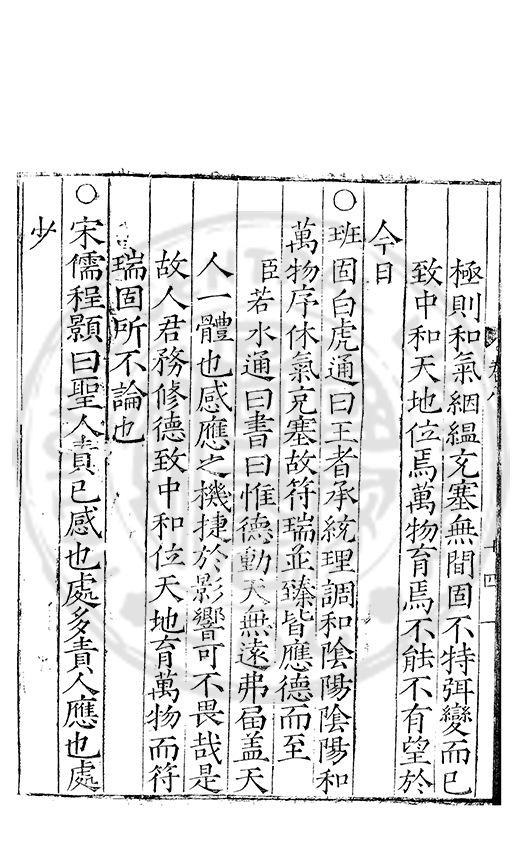 極則和氣絪縕充塞無間固不特弭變而已
致中和天地位焉萬物育焉不能不有望於
今日
○班固白虎通曰王者承統理調和陰陽陰陽和
萬物序休氣充塞故符瑞並臻皆應德而至
臣若水通曰書曰惟德動天無遠弗屆盖天
人一體也感應之機捷於影響可不畏哉是
故人君務修德致中和位天地育萬物而符
瑞固所不論也
○宋儒程顥曰聖人責已感也處多責人應也處
少